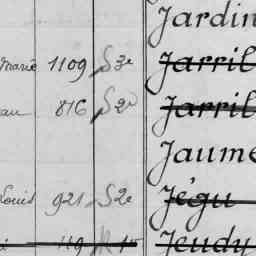 Jardin
marie 1109 S 3e Jarril
au 816 S 2e Jarril
Jaume
Louis 921 S 2e Jégu
119 Jeudy